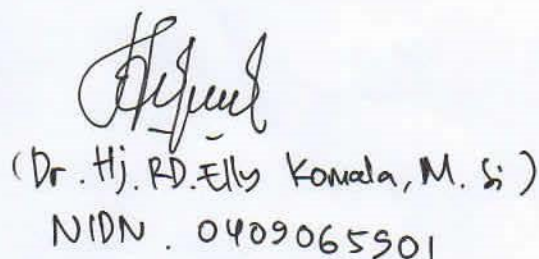 (Dr. Hj. RD. Elly Komala, M. Si)
NIDN. 0409065901